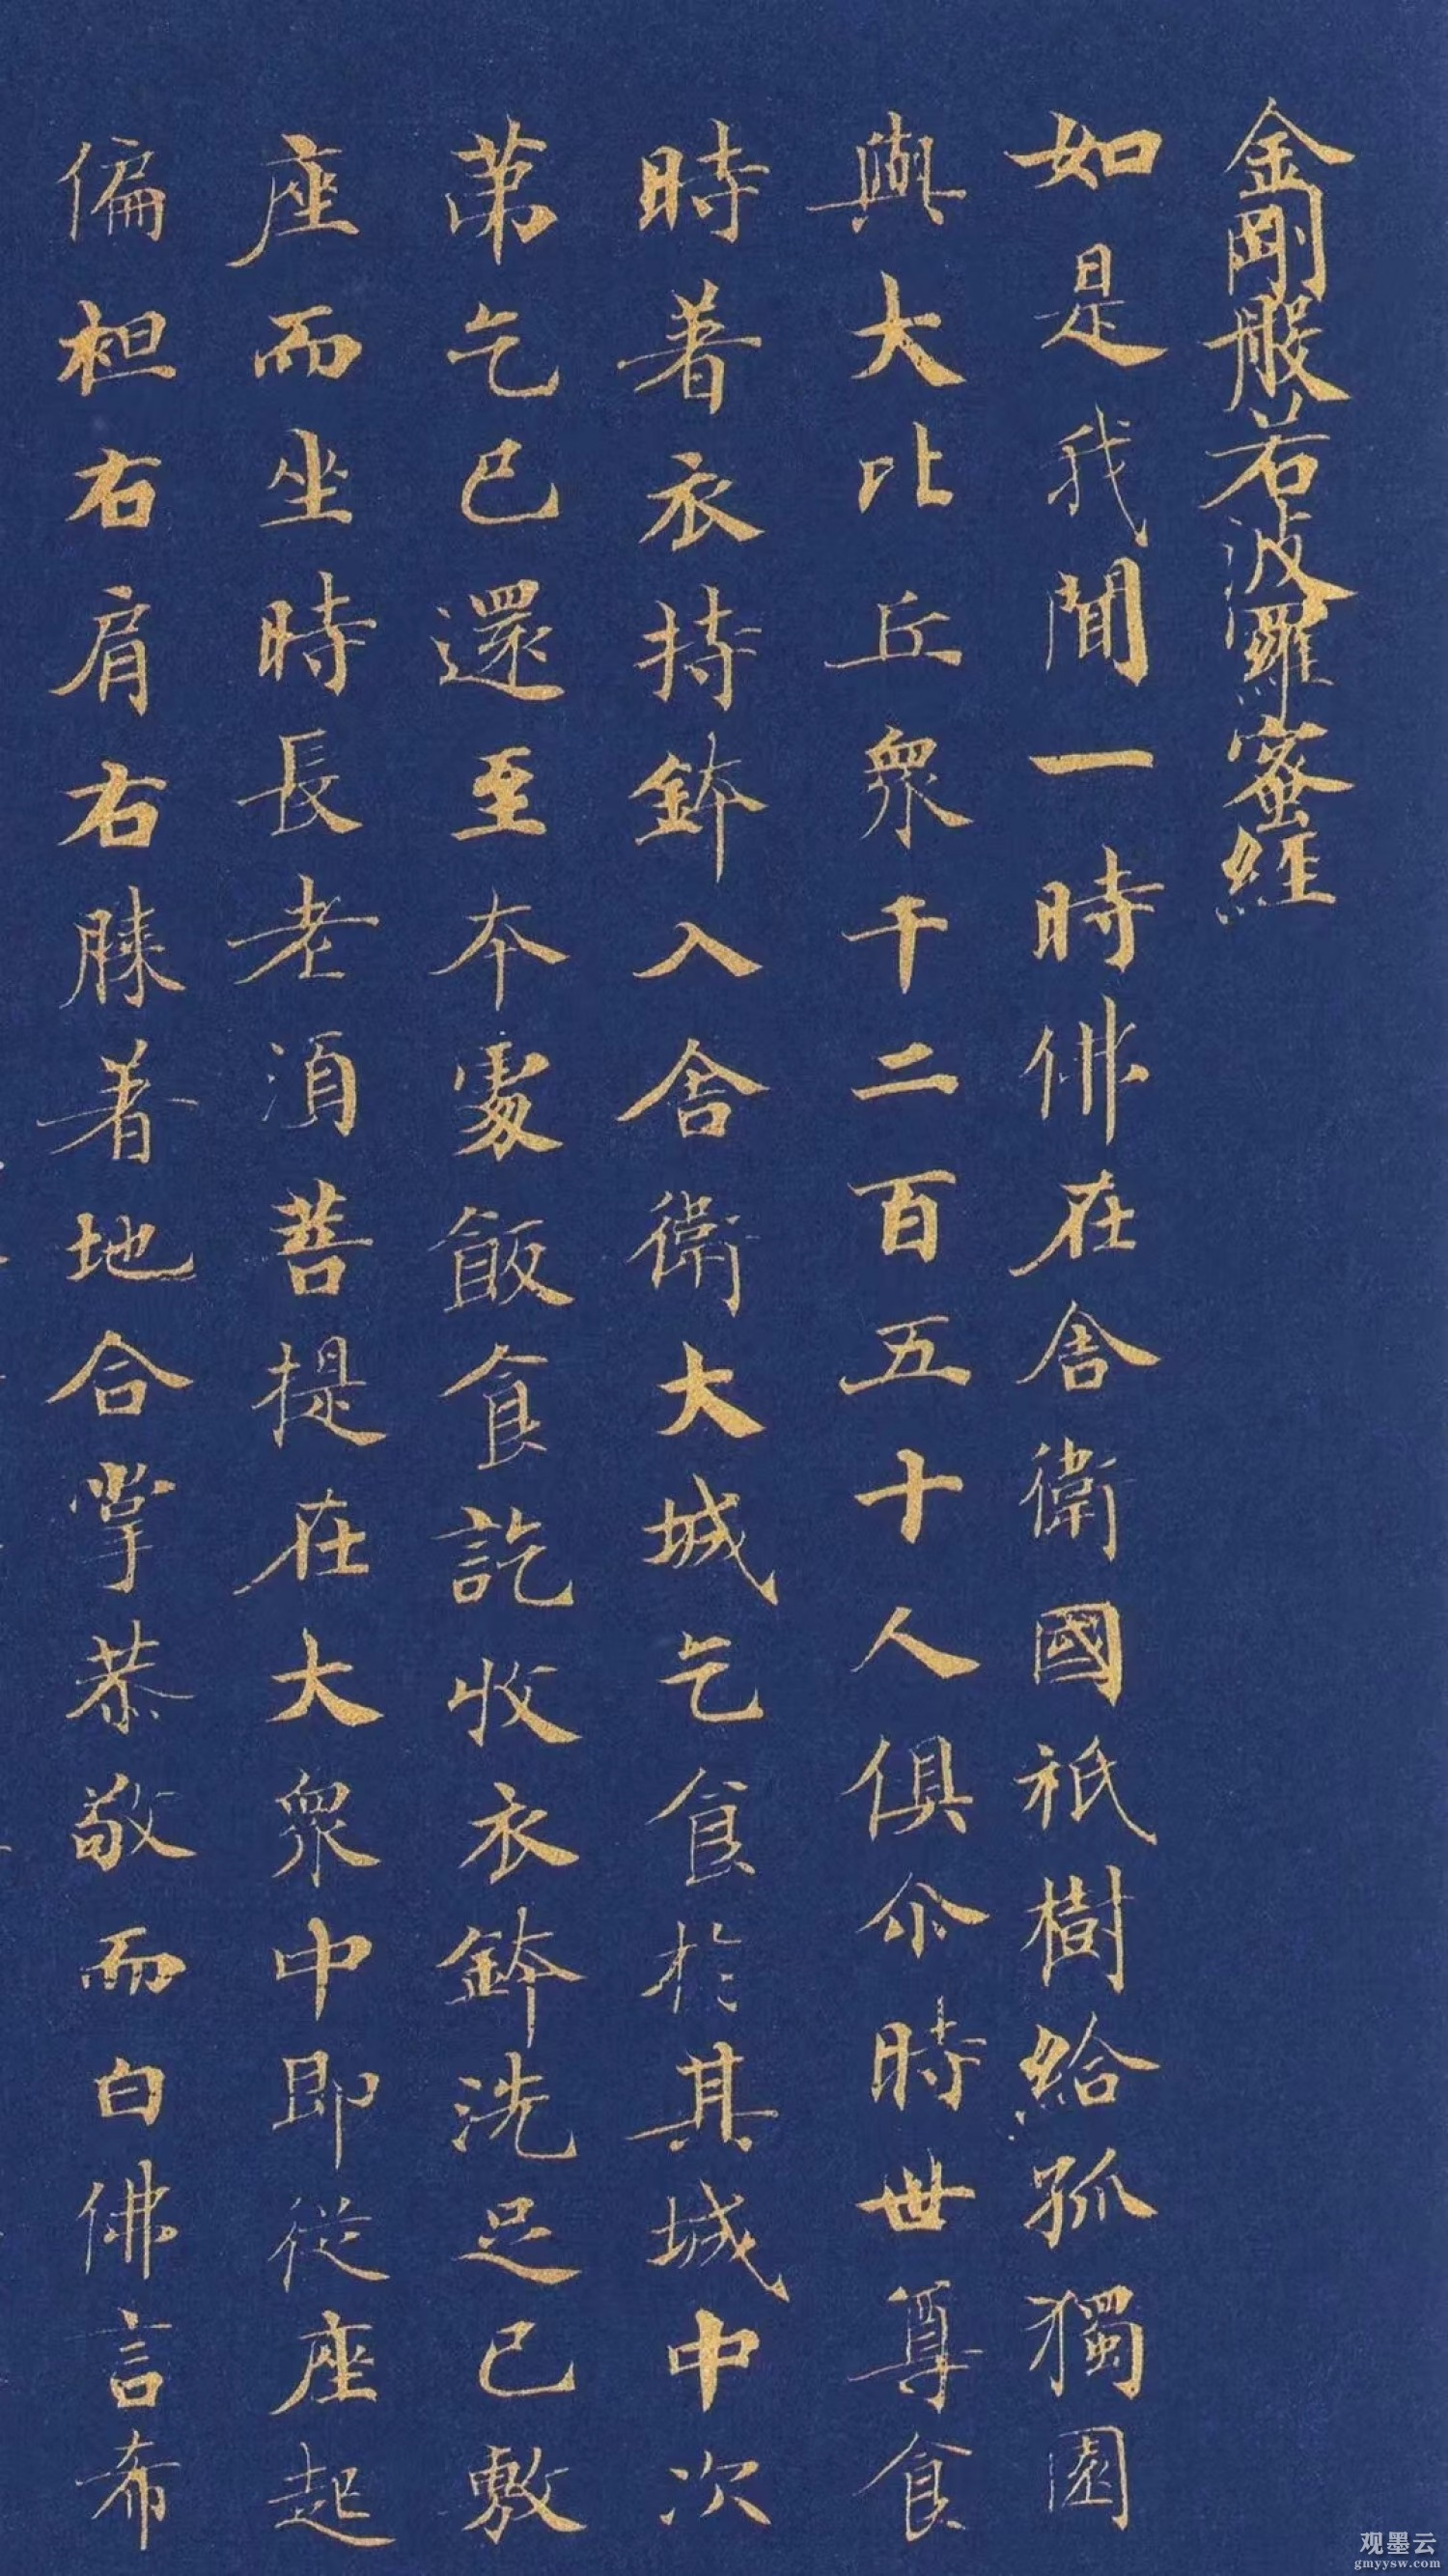 金剛般若波羅蜜經
如是我聞一時佛在舍衛國祇樹給孤獨園
與大比丘眾千二百五十人俱尒時世尊食
時著衣持鉢入舍衛大城乞食於其城中次
第乞已還至本處飯食訖收衣鉢洗足已敷
座而坐時長老須菩提在大眾中即從座起
偏袒右肩右膝著地合掌恭敬而白佛言希
观墨云
gmyysw.com